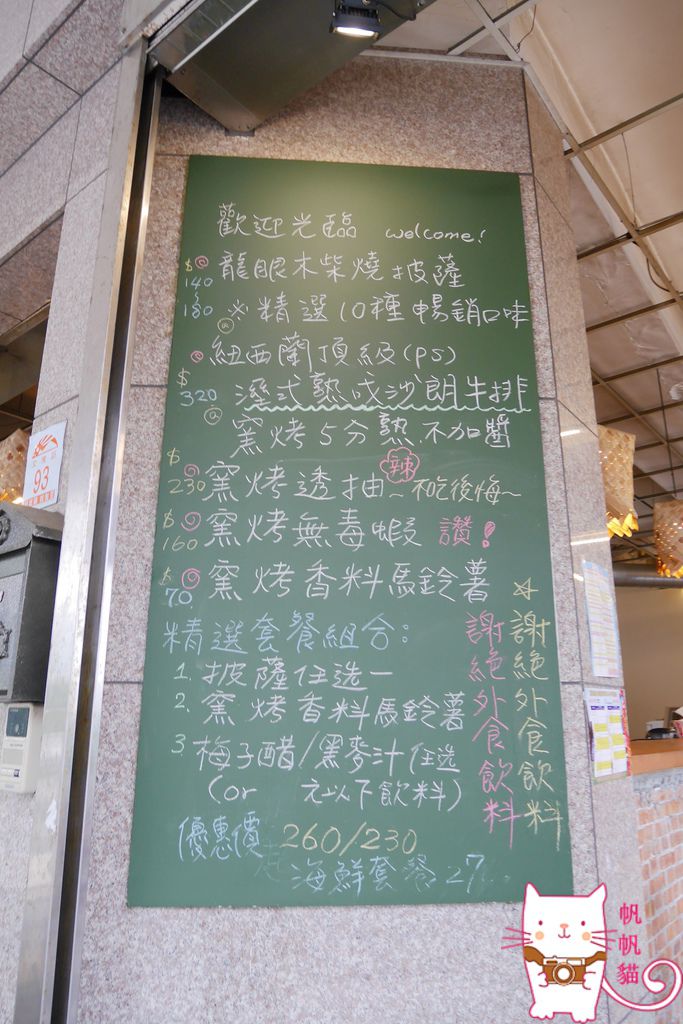 歡迎光臨 welcome!
$140~180 龍眼木柴燒披薩
※精選10種暢銷口味
紐西蘭頂級(ps)
$320 濕式熟成沙朗牛排
窯烤5分熟不加醬
$230 窯烤透抽~不吃後悔~
辣
$160 窯烤無毒蝦 讚!
$70 窯烤香料馬鈴薯
精選套餐組合:
1. 披薩任選一
2. 窯烤香料馬鈴薯
3 梅子醋/黑麥汁任選
(or 元以下飲料)
優惠價 260/230
海鮮套餐 27
謝絕外食飲料
☆謝絕外食飲料
93
帆帆貓